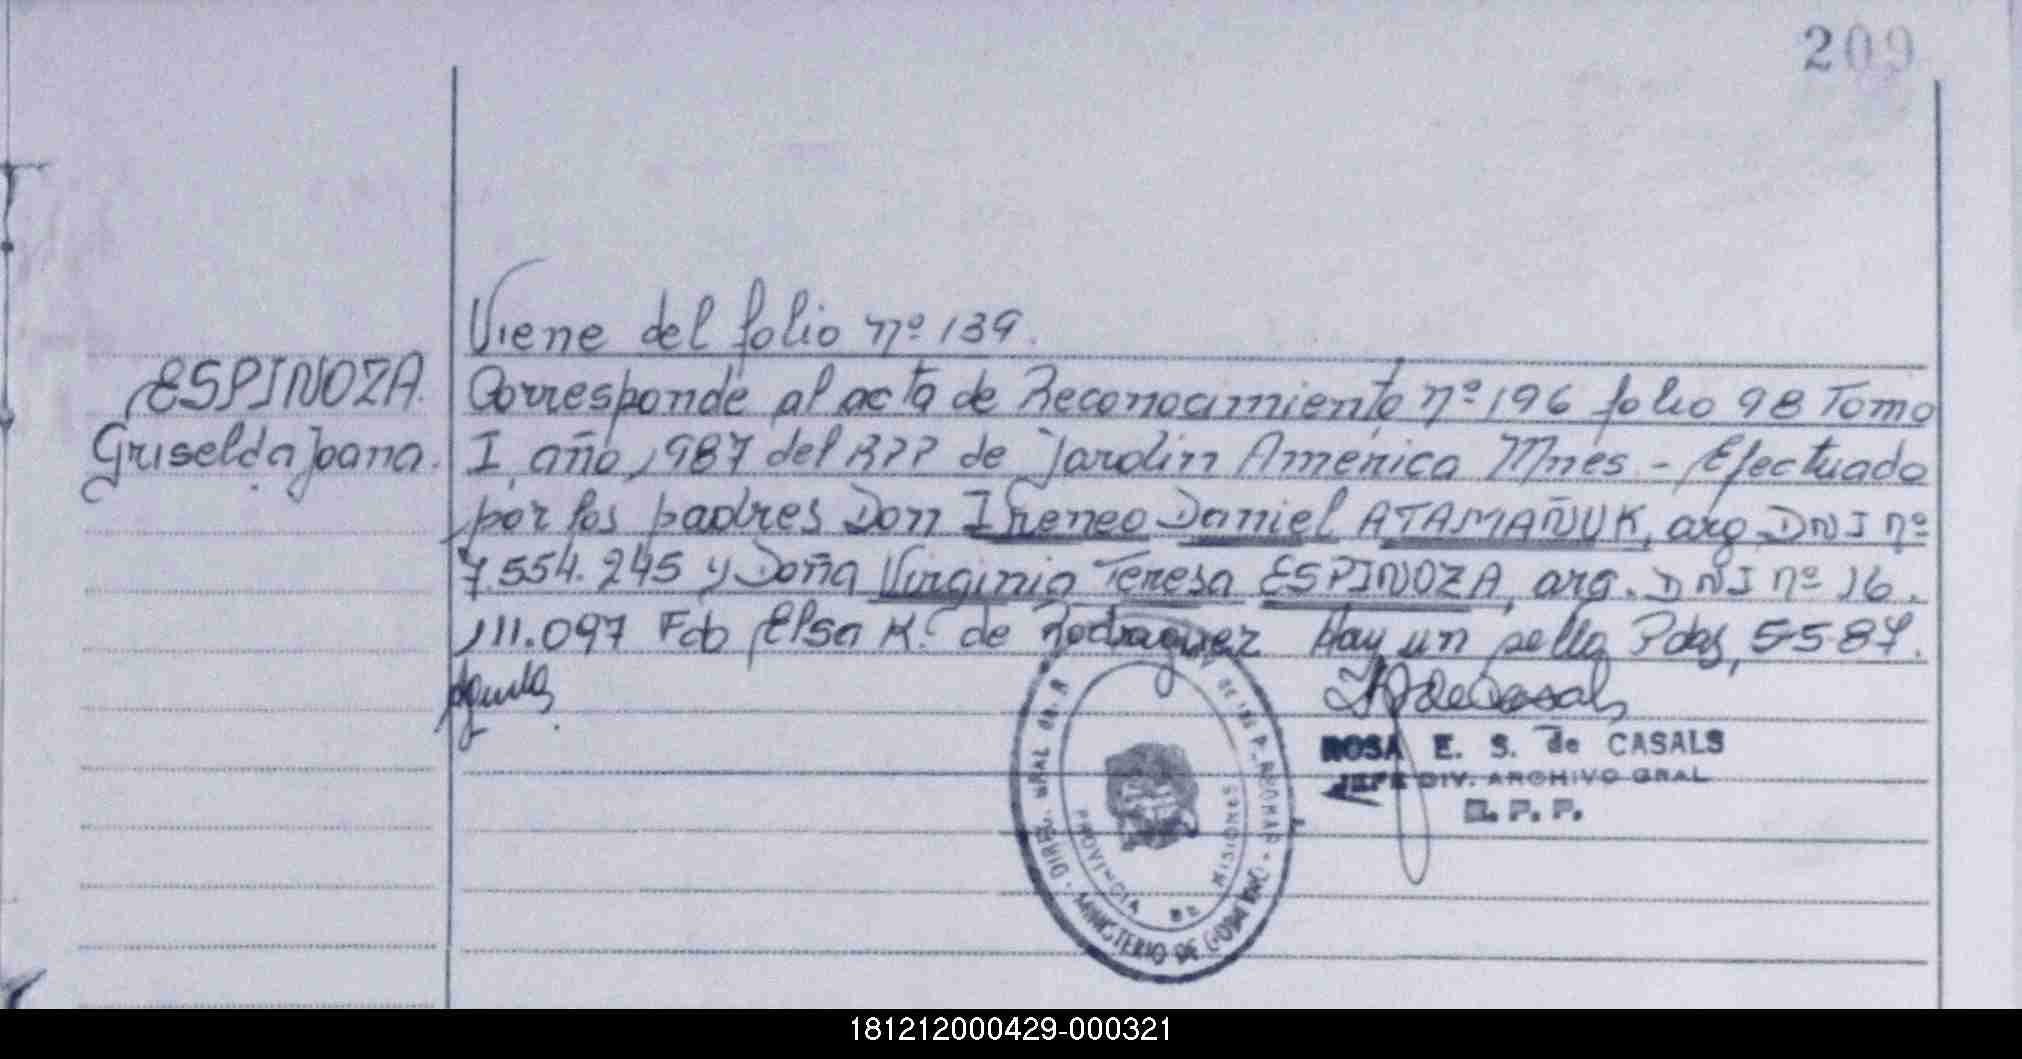 209
Viene del folio nº 139.
ESPINOZA.
Griselda Joana.
Corresponde al acta de Reconocimiento nº 196 folio 98 Tomo
I, año 1987 del RPP de Jardin América Mnes - Efectuado
por los padres Don Ireneo Daniel ATAMAÑUK, arg. DNI nº
7.554.245 y Doña Virginia Teresa ESPINOZA, arg. DNI nº 16.
111.097 Fdo Elsa K. de Rodriguez Hay un sello Pdas, 5-5-87.
ROSA E. S. de CASALS
JEFE DIV. ARCHIVO GRAL
R. P. P.
PROVINCIA DE MISIONES
MINISTERIO DE GOBIERNO
181212000429-000321